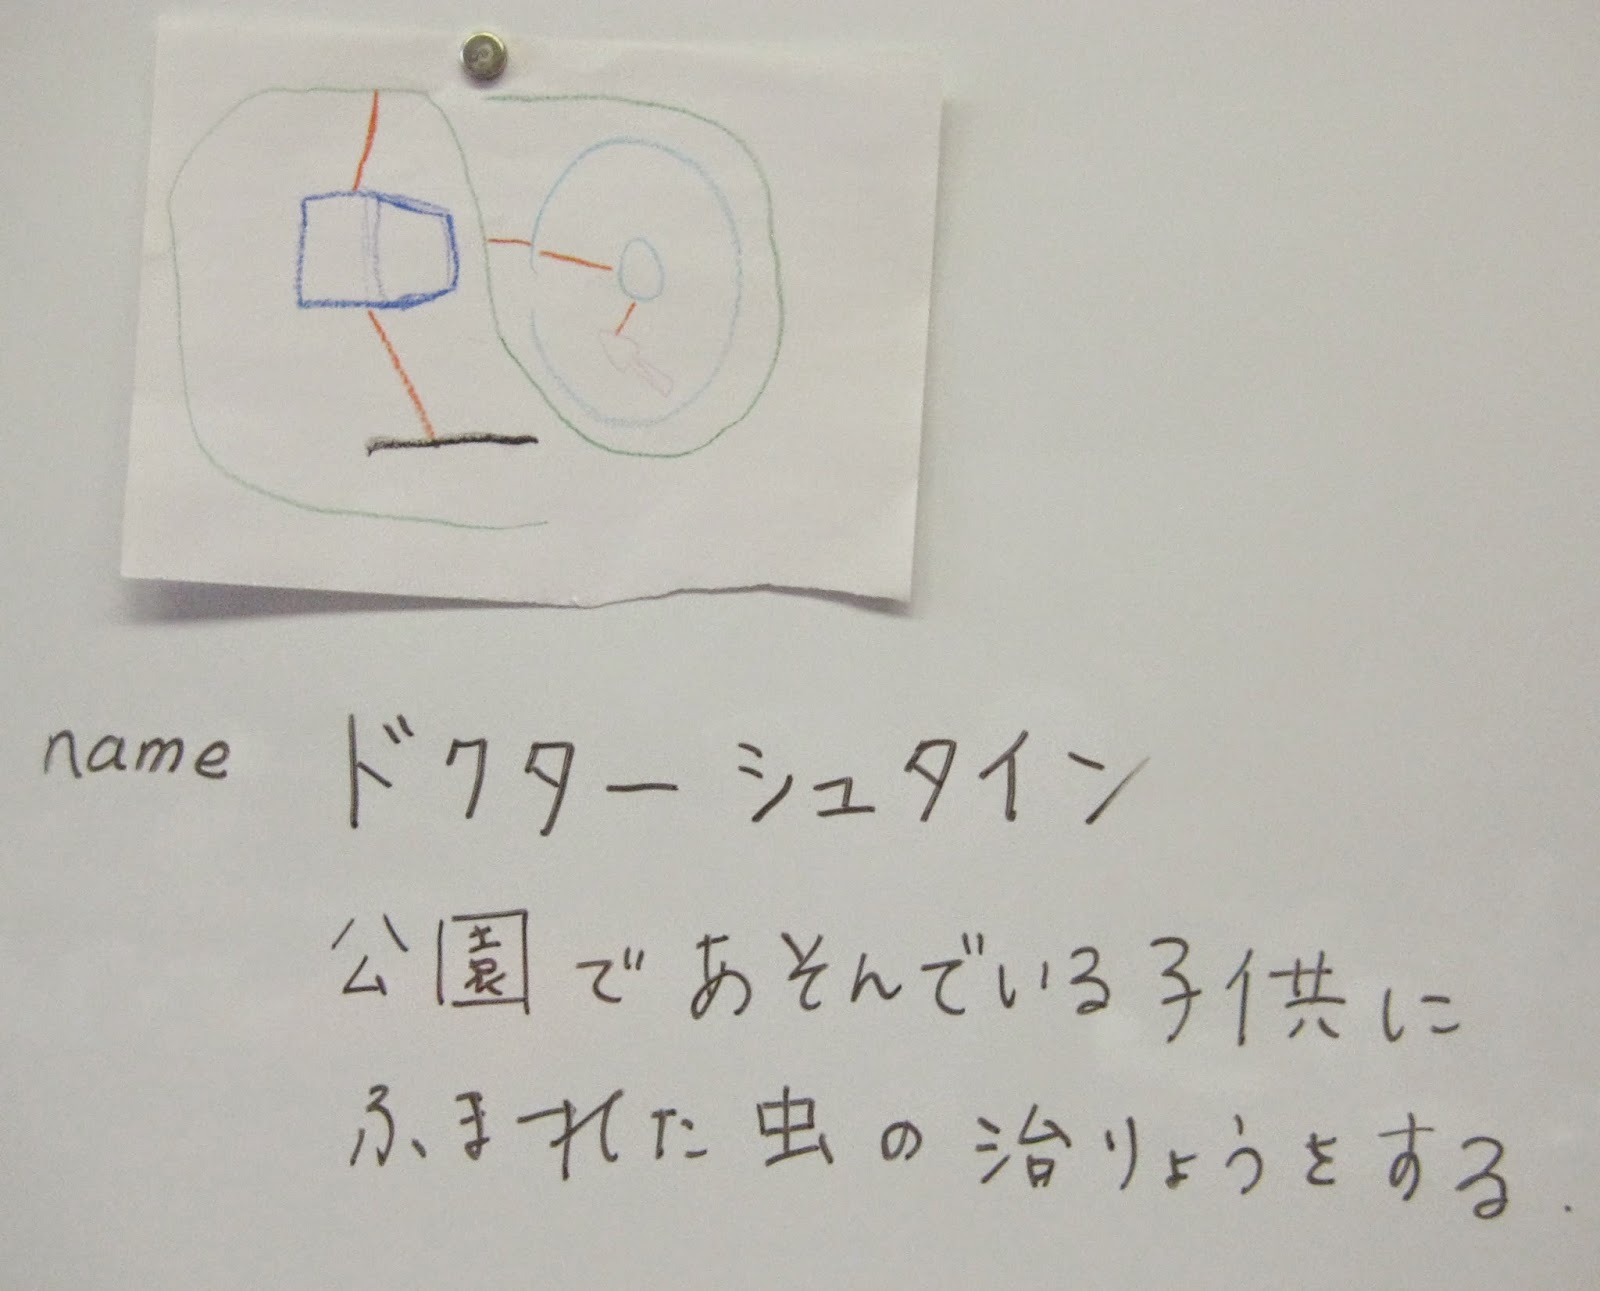 name ドクターシュタイン
公園であそんでいる子供に
ふまれた虫の治りょうをする.